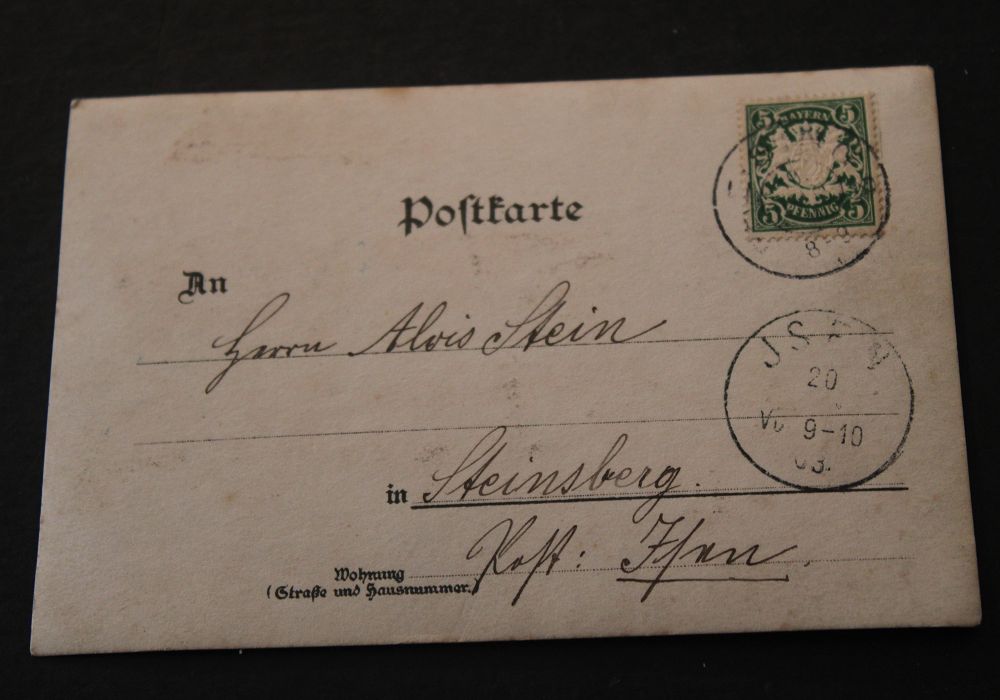 5 BAYERN 5
5 PFENNIG 5
8-9
Poſtkarte
An
Herrn Alois Stein
JSEN
20
9-10
03.
in Steinsberg.
Poſt: Iſen.
Wohnung
(Straße und Hausnummer.